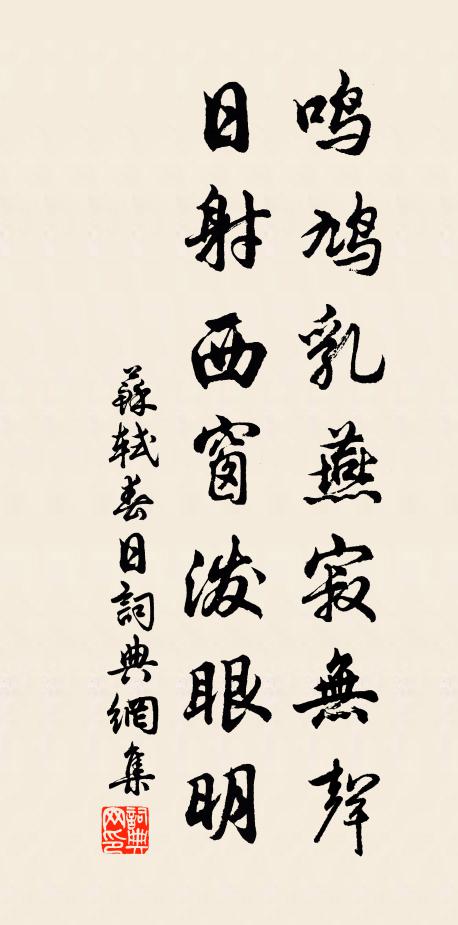 鳴鳩乳燕寂無聲
日射西窗潑眼明
蘇軾春日詞典網集
詞典
网印